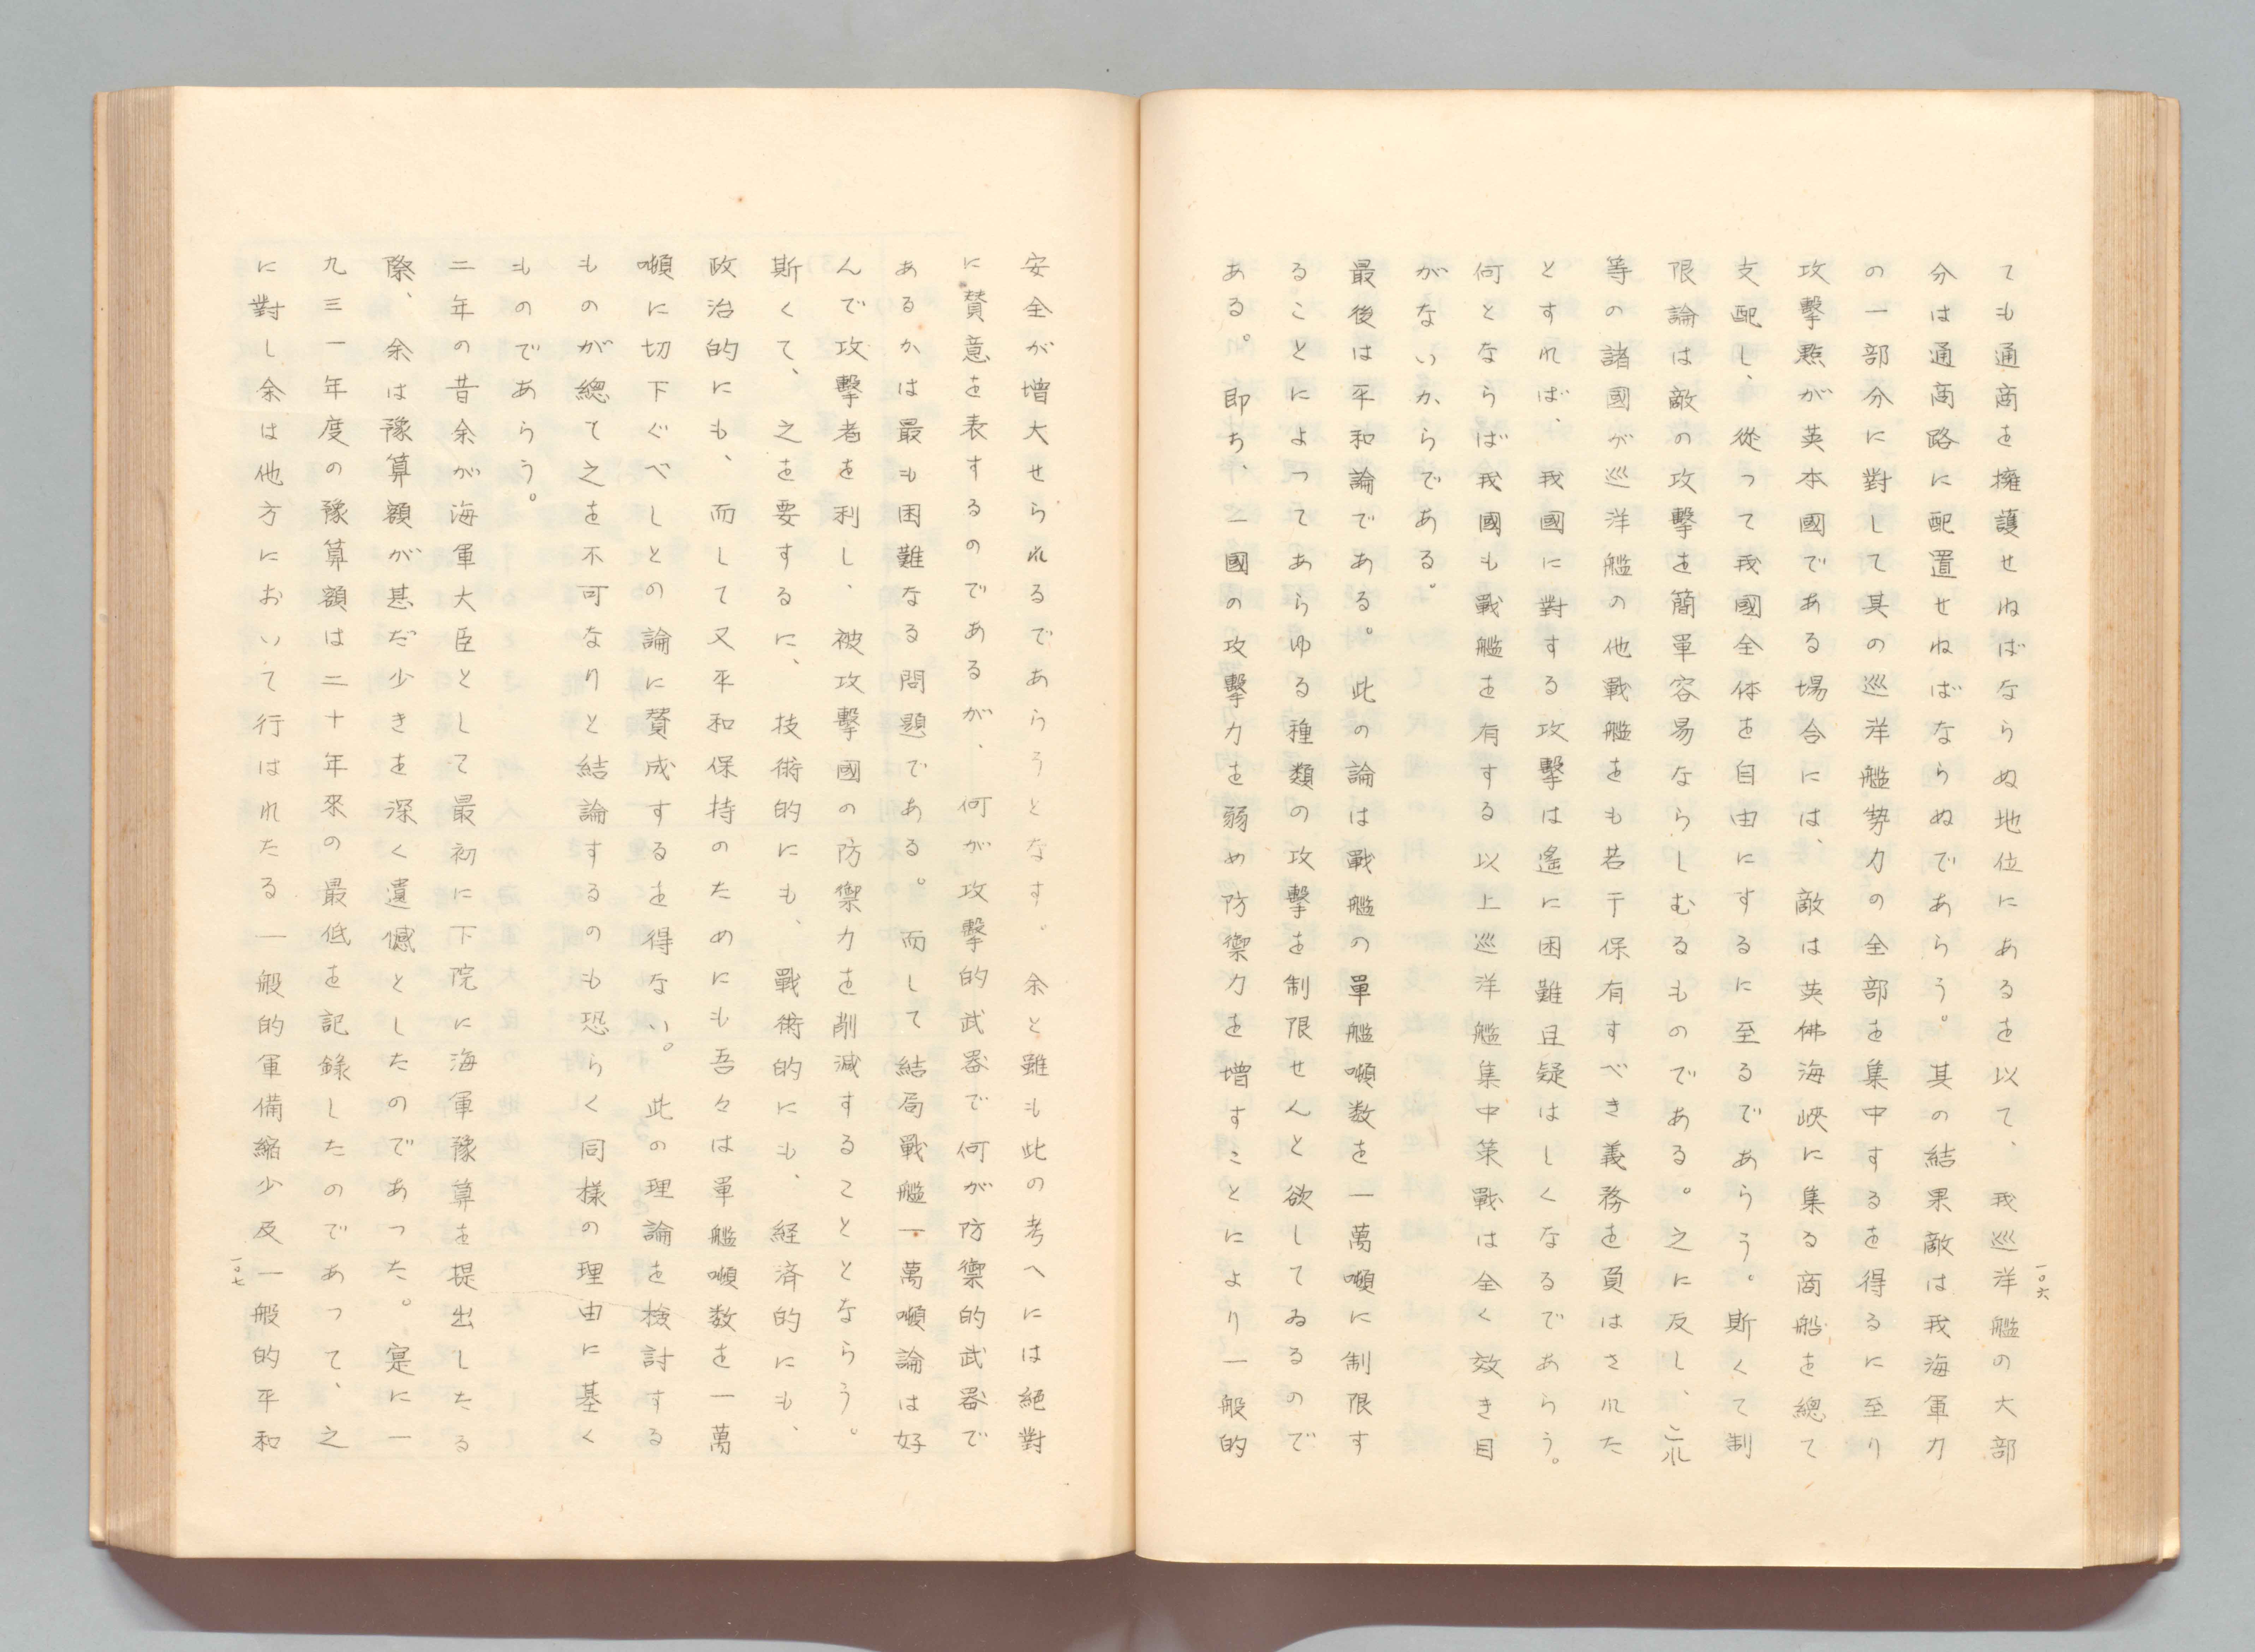 ても通商を擁護せねばならぬ地位にあるを以て、我巡洋艦の大部
分は通商路に配置せねばならぬであらう。其の結果敵は我海軍力
の一部分に對して其の巡洋艦勢力の全部を集中するを得るに至り
攻擊點が英本國である場合には、敵は英佛海峽に集る商船を總て
支配し、從つて我國全体を自由にするに至るであらう。斯くて制
限論は敵の攻擊を簡單容易ならしむるものである。之に反し、これ
等の諸國が巡洋艦の他戰艦をも若干保有すべき義務を負はされた
とすれば、我國に對する攻擊は遙に困難且疑はしくなるであらう。
何とならば我國も戰艦を有する以上巡洋艦集中策戰は全く效き目
がないからである。
最後は平和論である。此の論は戰艦の單艦噸数を一萬噸に制限す
ることによつてあらゆる種類の攻擊を制限せんと欲してゐるので
ある。即ち、一國の攻擊力を弱め防禦力を增すことにより一般的
一〇六
安全が增大せられるであらうとなす。余と雖も此の考へには絕對
に賛意を表するのであるが、何が攻擊的武器で何が防禦的武器で
あるかは最も困難なる問題である。而して結局戰艦一萬噸論は好
んで攻擊者を利し、被攻擊國の防禦力を削減することとならう。
斯くて、之を要するに、技術的にも、戰術的にも、経済的にも、
政治的にも、而して又平和保持のためにも吾々は單艦噸数を一萬
噸に切下ぐべしとの論に賛成するを得ない。此の理論を檢討する
ものが總て之を不可なりと結論するのも恐らく同樣の理由に基く
ものであらう。
二年の昔余が海軍大臣として最初に下院に海軍豫算を提出したる
際、余は豫算額が甚だ少きを深く遺憾としたのであつた。寔に一
九三一年度の豫算額は二十年來の最低を記錄したのであつて、之
に對し余は他方において行はれたる一般的軍備縮少及一般的平和
一〇七